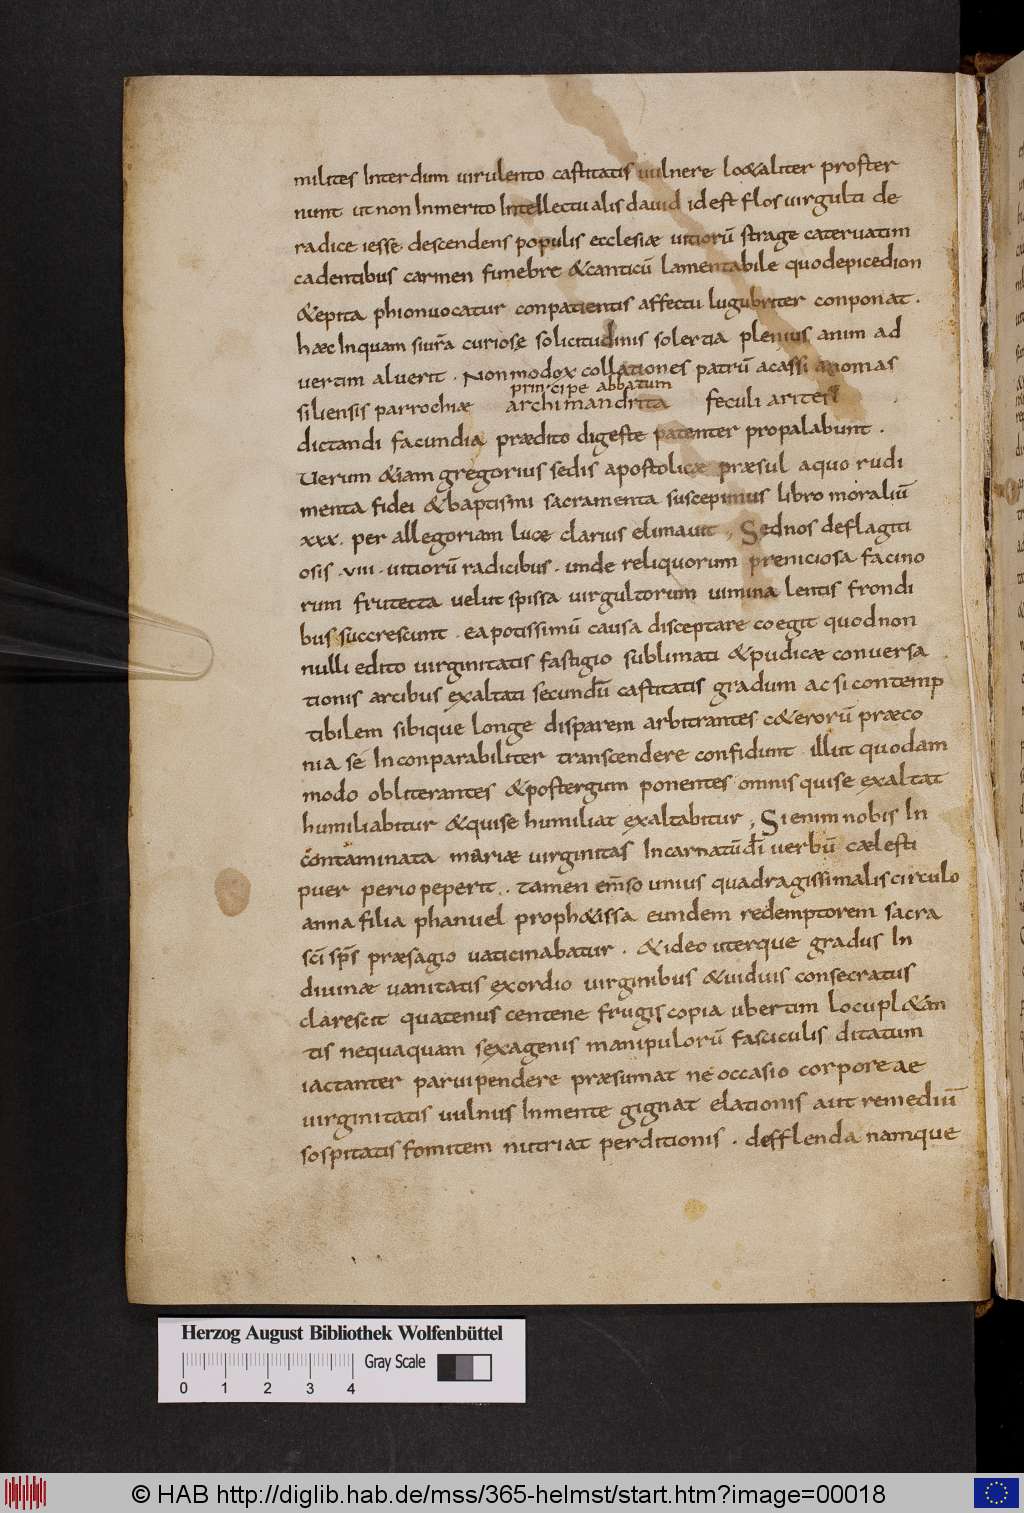 milites Interdum virulento castitatis vulnere lo&aliter proster
nunt ut non Inmerito Intellectualis david id est flos virgulti de
radice iesse descendens populis ecclesiæ vitiorū strage catervatim
cadentibus carmen funebre &canticū lamentabile quod epicedion
&epita phion vocatur conpatientis affectu lugubriter conponat.
hæc Inquam siur̄a curiosę solicitudinis solertia plenius anim ad
vertim aluerit. Non modox collationes patrū acassi anomas
principe abbatum
siliensis parrochiæ archimandrita feculi aritess
dictandi facundia prædito digeste patenter propalabunt.
Verum &iam gregorius sedis apostolicæ præsul a quo rudi
menta fidei &baptismi sacramenta suscepimus libro moraliū
xxx. per allegoriam luce clarius elimavit, Sed nos deflagiti
osis .viii. vitiorū radicibus. unde reliquorum preniciosa facino
rum frutecta velut spissa virgultorum vimina lentis frondi
bus succrescunt. ea potissimū causa disceptare coegit quod non
nulli edito virginitatis fastigio sublimati &pudicæ conversa
tionis artibus exaltati secundū castitatis gradum ac si contemp
tibilem sibique longe disparem arbitrantes c&erorū præco
nia se Inconparabiliter transcendere confidunt illut quodam
modo obliterantes &postergum ponentes omnis qui se exaltat
humiliabitur &qui se humiliat exaltabitur, Si enim nobis In
contaminata mariæ virginitas Incarnatū dī verbū cælesti
puer perio peperit. tamen em̄so unius quadragissimalis circulo
anna filia phanuel proph&issa eundem redemptorem sacra
sc̄i sp̄s præsagio vaticinabatur. &ideo uterque gradus In
divinæ vanitatis exordio virginibus &viduis consecratus
clarescit quatenus centene frugis copia ubertim locupl&an
tis nequaquam sexagenis manipulorū fasciculis ditatum
iactanter parvipendere præsumat ne occasio corporeae
virginitatis vulnus Inmente gignat elationis aut remediū
sospitatis fomitem nutriat perditionis. defflenda namque
Herzog August Bibliothek Wolfenbüttel
Gray Scale
0 1 2 3 4
© HAB http://diglib.hab.de/mss/365-helmst/start.htm?image=00018